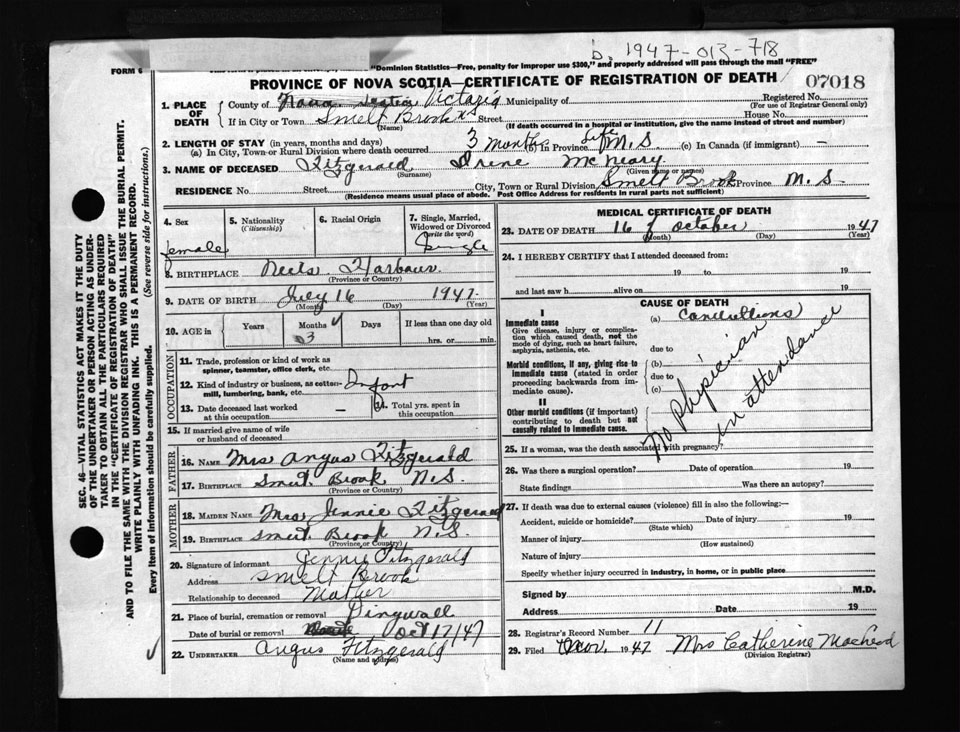 b. 1947-012-718
FORM 6
"Dominion Statistics—Free, penalty for improper use $300," and properly addressed will pass through the mail "FREE"
PROVINCE OF NOVA SCOTIA—CERTIFICATE OF REGISTRATION OF DEATH
07018
1. PLACE OF DEATH
County of Nova Scotia Victoria Municipality of
Registered No.
(For use of Registrar General only)
If in City or Town Smelt Brook Street House No.
(Name) (If death occurred in a hospital or institution, give the name instead of street and number)
2. LENGTH OF STAY (in years, months and days)
(a) In City, Town or Rural Division where death occurred 3 months (b) in Province Life N.S. (c) In Canada (if immigrant) —
3. NAME OF DECEASED Fitzgerald Irene McNeary
(Surname) (Given name or names)
RESIDENCE No. Street City, Town or Rural Division Smelt Brook Province N.S.
(Residence means usual place of abode. Post Office Address for residents in rural parts not sufficient)
4. Sex
female
5. Nationality
(Citizenship)
6. Racial Origin
7. Single, Married, Widowed or Divorced
(write the word)
Single
8. BIRTHPLACE Neils Harbour
(Province or Country)
9. DATE OF BIRTH July 16 1947
(Month) (Day) (Year)
10. AGE in
Years
Months
3
Days
If less than one day old
hrs. or min.
OCCUPATION
11. Trade, profession or kind of work as
spinner, teamster, office clerk, etc.
12. Kind of industry or business, as cotton-
mill, lumbering, bank, etc. Infant
13. Date deceased last worked
at this occupation —
14. Total yrs. spent in
this occupation
15. If married give name of wife
or husband of deceased
FATHER
16. NAME Mrs Angus Fitzgerald
17. BIRTHPLACE Smelt Brook N.S.
MOTHER
18. MAIDEN NAME Mrs Jennie Fitzgerald
19. BIRTHPLACE Smelt Brook N.S.
(Province or Country)
20. Signature of informant Jennie Fitzgerald
Address Smelt Brook
Relationship to deceased Mother
21. Place of burial, cremation or removal Dingwall
Date of burial or removal Oct 17/47
22. UNDERTAKER Angus Fitzgerald
(Name and address)
MEDICAL CERTIFICATE OF DEATH
23. DATE OF DEATH 16 of October 1947
(Month) (Day) (Year)
24. I HEREBY CERTIFY that I attended deceased from:
19 to 19
and last saw h alive on 19
CAUSE OF DEATH
I
Immediate cause
Give disease, injury or complication which caused death, not the mode of dying, such as heart failure, asphyxia, asthenia, etc.
(a) Convultions
due to
Morbid conditions, if any, giving rise to immediate cause (stated in order proceeding backwards from immediate cause).
(b)
due to
(c)
II
Other morbid conditions (if important) contributing to death but not causally related to immediate cause.
No physician
in attendance
25. If a woman, was the death associated with pregnancy?
26. Was there a surgical operation? Date of operation 19
State findings Was there an autopsy?
27. If death was due to external causes (violence) fill in also the following:
Accident, suicide or homicide? Date of injury 19
(State which)
Manner of injury
(How sustained)
Nature of injury
Specify whether injury occurred in industry, in home, or in public place
Signed by M.D.
Address Date 19
28. Registrar's Record Number 11
29. Filed Nov. 1947 Mrs Catherine MacLeod
(Division Registrar)
SEC. 46—VITAL STATISTICS ACT MAKES IT THE DUTY
OF THE UNDERTAKER OR PERSON ACTING AS UNDER-
TAKER TO OBTAIN ALL THE PARTICULARS REQUIRED
IN THE "CERTIFICATE OF REGISTRATION OF DEATH"
AND TO FILE THE SAME WITH THE DIVISION REGISTRAR WHO SHALL ISSUE THE BURIAL PERMIT.
WRITE PLAINLY WITH UNFADING INK. THIS IS A PERMANENT RECORD.
Every item of information should be carefully supplied. (See reverse side for instructions.)